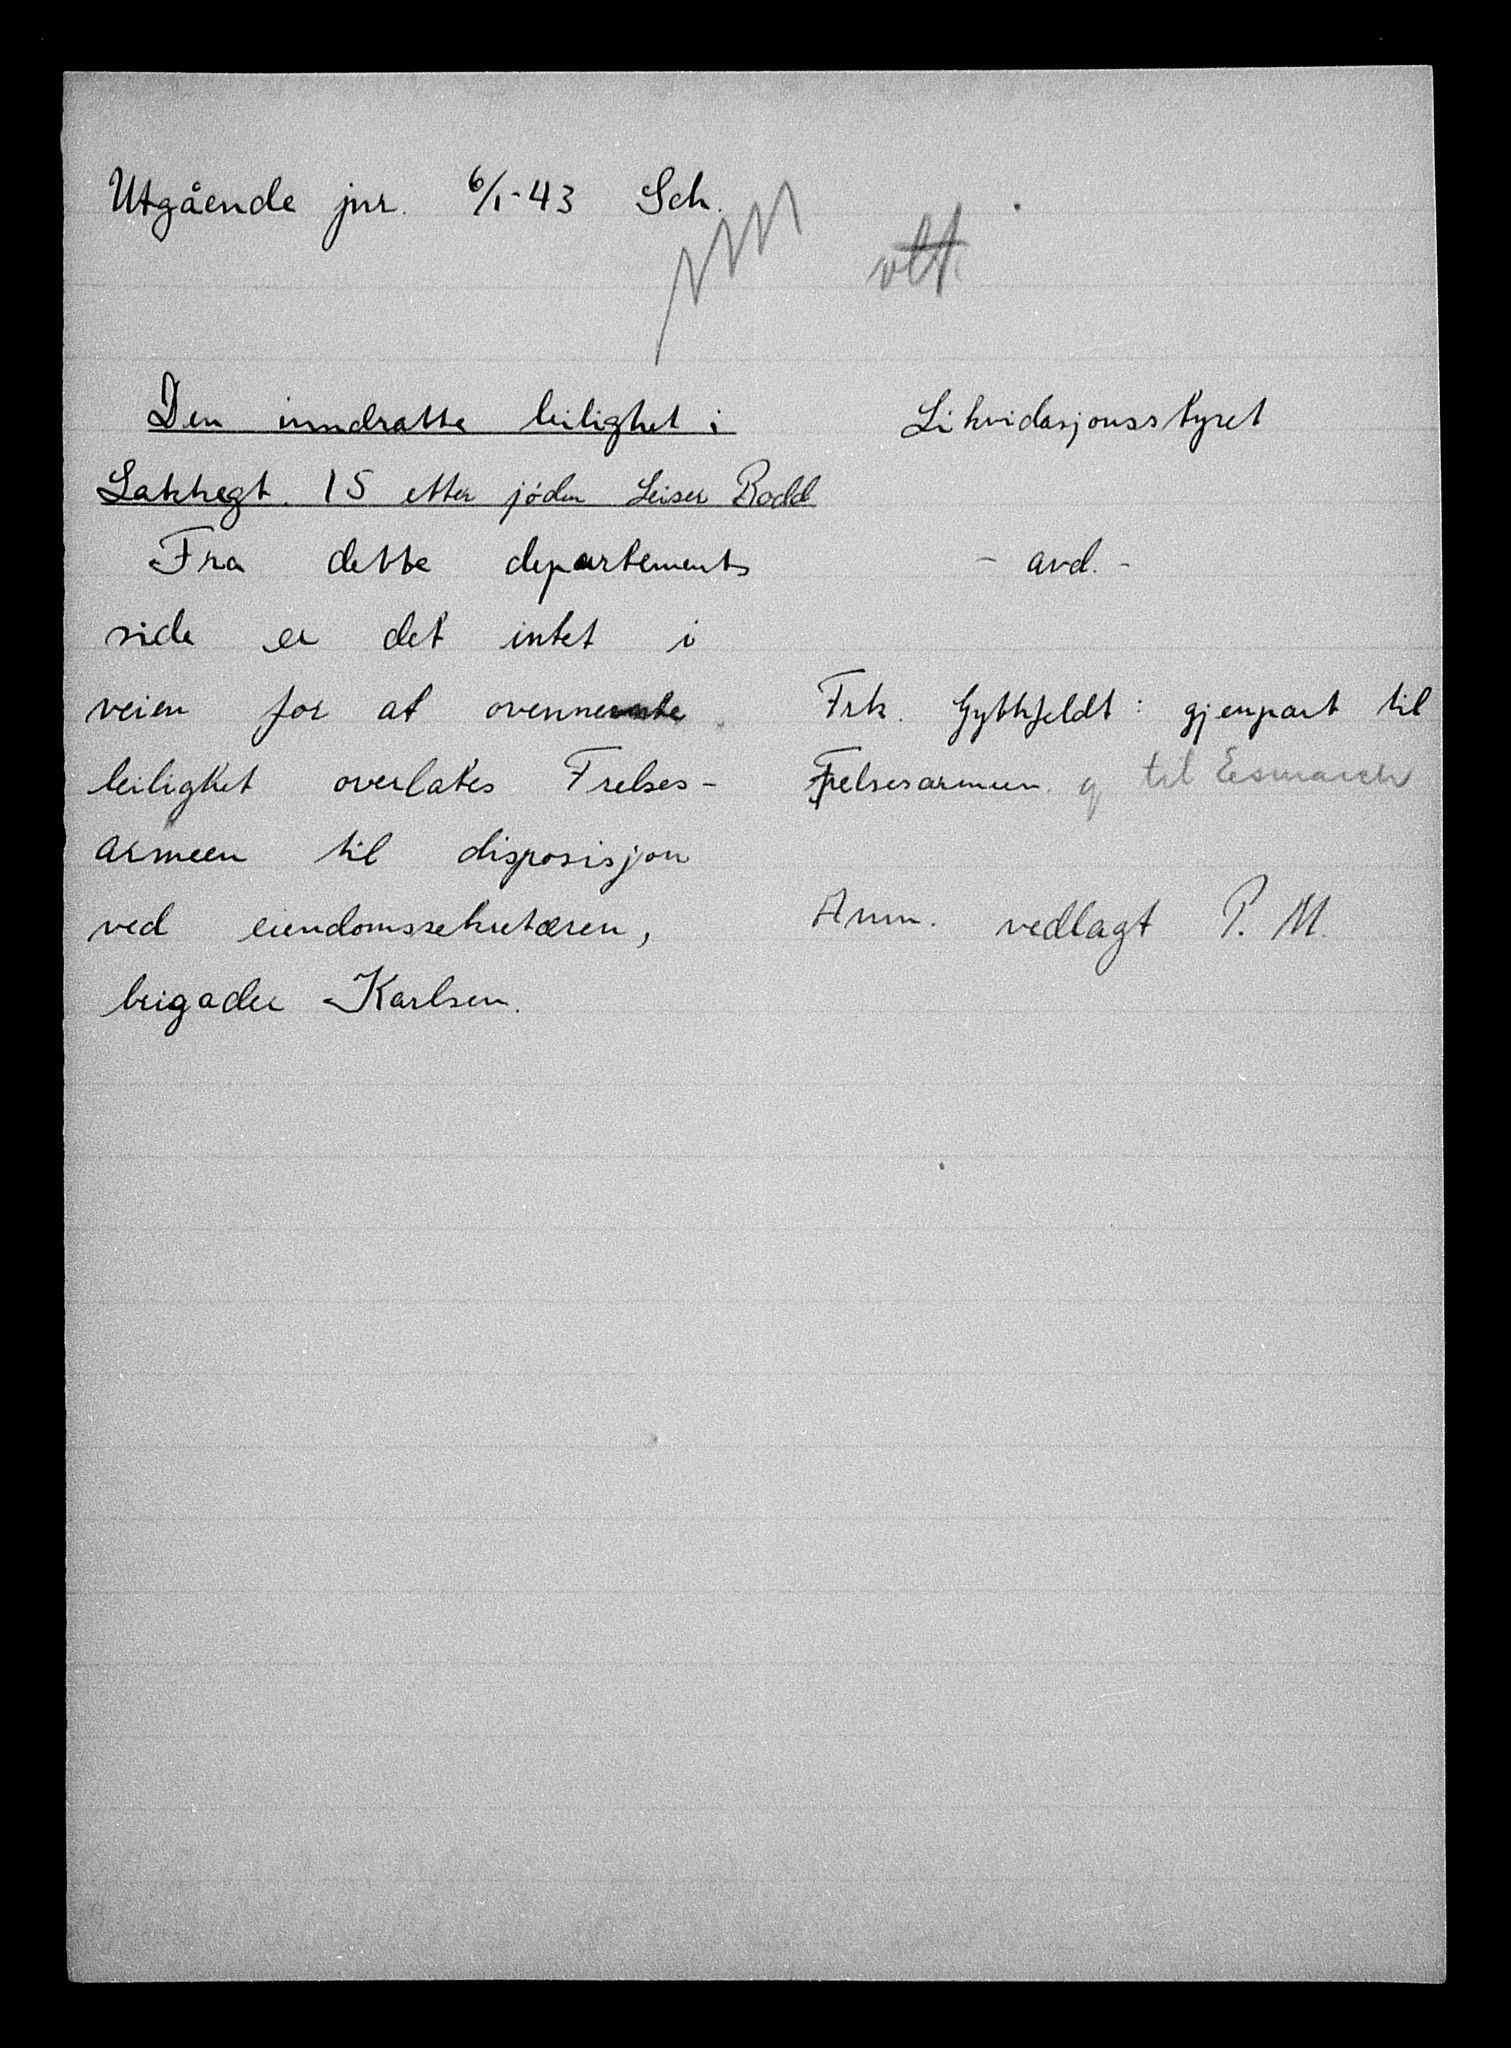 Utgående jnr. 6/1-43 Sch.
Den inndratte leilighet i
Lakkegt. 15 etter jøden Leiser Rodd
Fra dette departements
side er det intet i
veien for at ovennevnte
leilighet overlates Frelses-
armeen til disposisjon
ved eiendomssekretæren,
brigader Karlsen.
Likvidasjonsstyret
- avd. -
Frk. Gythfeldt: gjenpart til
Frelsesarmeen og til Esmarch
Anm. vedlagt P. M.